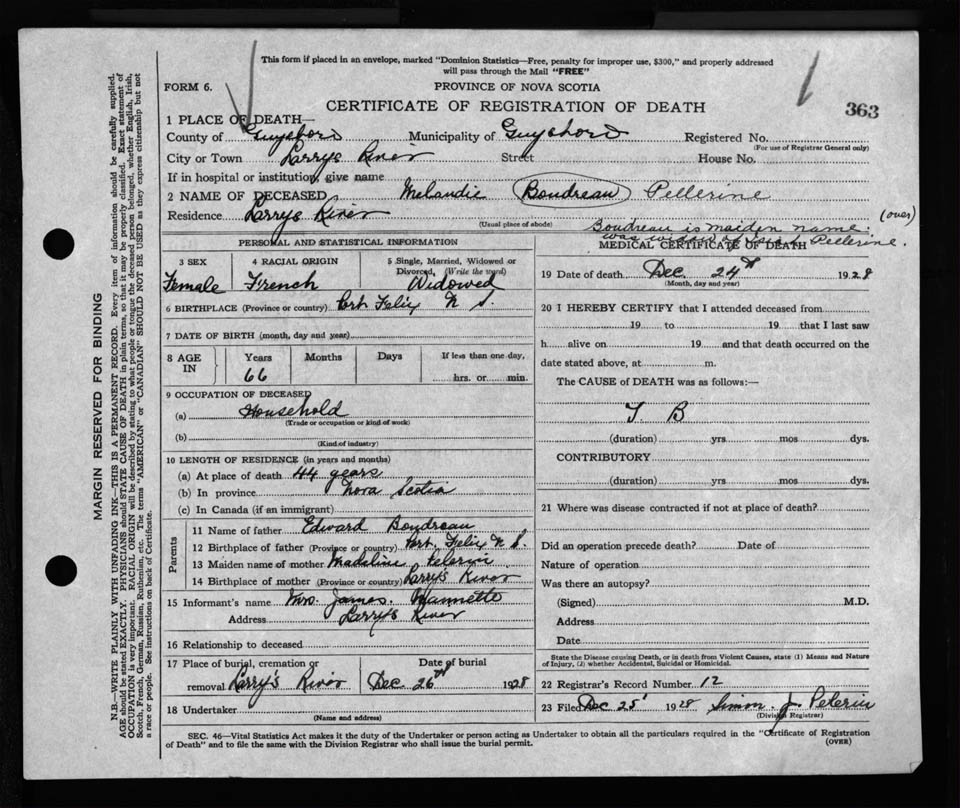 This form if placed in an envelope, marked "Dominion Statistics—Free, penalty for improper use, $300," and properly addressed
will pass through the Mail "FREE"
FORM 6.
PROVINCE OF NOVA SCOTIA
CERTIFICATE OF REGISTRATION OF DEATH
363
1 PLACE OF DEATH—
County of Guysboro Municipality of Guysboro Registered No.
(For use of Registrar General only)
City or Town Larrys River Street House No.
If in hospital or institution, give name
2 NAME OF DECEASED Melandie Boudreau Pellerine
(over)
Residence Larrys River
(Usual place of abode)
Boudreau is maiden name.
was widow of Pellerine.
PERSONAL AND STATISTICAL INFORMATION
3 SEX 4 RACIAL ORIGIN 5 Single, Married, Widowed or
Divorced, (Write the word)
Female French Widowed
6 BIRTHPLACE (Province or country) Port Felix N S.
7 DATE OF BIRTH (month, day and year)
8 AGE IN Years Months Days If less than one day,
66 hrs. or min.
9 OCCUPATION OF DECEASED
(a) Household
(Trade or occupation or kind of work)
(b)
(Kind of industry)
10 LENGTH OF RESIDENCE (in years and months)
(a) At place of death 44 years
(b) In province Nova Scotia
(c) In Canada (if an immigrant)
Parents
11 Name of father Edward Boudreau
12 Birthplace of father (Province or country) Port Felix N S.
13 Maiden name of mother Madeline Pelerin
14 Birthplace of mother (Province or country) Larry's River
15 Informant's name Mrs. James Mannette
Address Larry's River
16 Relationship to deceased
17 Place of burial, cremation or Date of burial
removal Larry's River Dec 26th 1928
18 Undertaker
(Name and address)
MEDICAL CERTIFICATE OF DEATH
19 Date of death Dec. 24th 1928
(Month, day and year)
20 I HEREBY CERTIFY that I attended deceased from
19 to 19 that I last saw
h alive on 19 and that death occurred on the
date stated above, at m.
The CAUSE of DEATH was as follows:—
T B
(duration) yrs mos dys.
CONTRIBUTORY
(duration) yrs. mos dys.
21 Where was disease contracted if not at place of death?
Did an operation precede death? Date of
Nature of operation
Was there an autopsy?
(Signed) M.D.
Address
Date
State the Disease causing Death, or in death from Violent Causes, state (1) Means and Nature
of Injury, (2) whether Accidental, Suicidal or Homicidal.
22 Registrar's Record Number 12
23 Filed Dec 25 1928 Simon J. Pelerin
(Division Registrar)
SEC. 46—Vital Statistics Act makes it the duty of the Undertaker or person acting as Undertaker to obtain all the particulars required in the "Certificate of Registration
of Death" and to file the same with the Division Registrar who shall issue the burial permit.
(OVER)
MARGIN RESERVED FOR BINDING
N.B.—WRITE PLAINLY WITH UNFADING INK—THIS IS A PERMANENT RECORD. Every item of information should be carefully supplied.
AGE should be stated EXACTLY. PHYSICIANS should STATE CAUSE OF DEATH in plain terms, so that it may be properly classified. Exact statement of
OCCUPATION is very important. RACIAL ORIGIN will be described by stating to what people or tongue the deceased person belonged, whether English, Irish,
Scotch, French, German, Russian, Ruthenian, etc. The terms "AMERICAN" or "CANADIAN" SHOULD NOT BE USED as they express citizenship but not
a race or people. See instructions on back of Certificate.